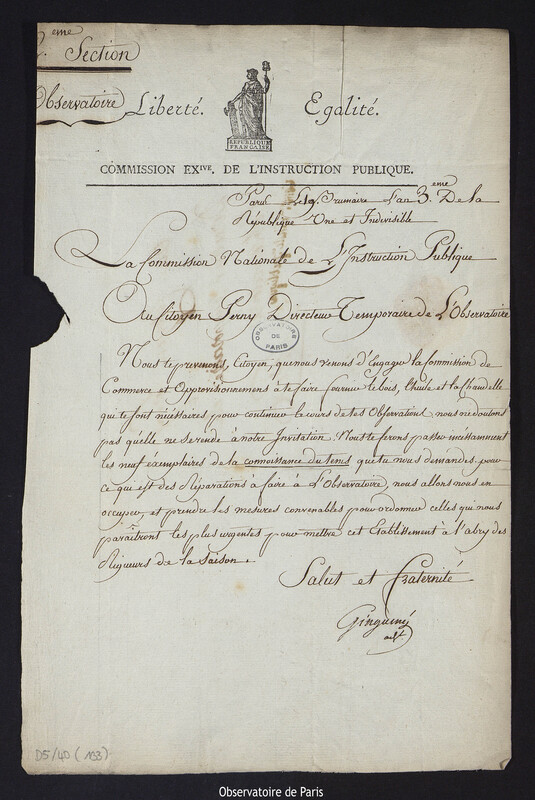 2.eme Section
Observatoire
Liberté. Egalité.
REPUBLIQUE
FRANÇAISE
COMMISSION EXIVE. DE L'INSTRUCTION PUBLIQUE.
Paris Le 19. Brumaire L'an 3.eme De la
République Une et Indivisible
La Commission Nationale de L'Instruction Publique
Au Citoyen Perny Directeur Temporaire de L'Observatoire
OBSERVATOIRE
DE
PARIS
Nous te prevenons, Citoyen, que nous venons d'Engager la Commission de
Commerce et Approvisionnemens à te faire fournir le bois, l'huile et la chandelle
qui te sont nécéssaires pour continuer le cours de tes Observations nous ne doutons
pas qu'elle ne se rende à nôtre Invitation. Nous te ferons passer incéssamment
les neuf éxemplaires de la connoissance du tems que tu nous demandes, pour
ce qui est des Réparations à faire à L'Observatoire, nous allons nous en
occuper, et prendre les mesures convenables pour ordonner celles qui nous
paraîtront les plus urgentes pour mettre cet Etablissement à l'abry des
Rigueurs de la Saison.
Salut et fraternité
Ginguené
adjt.
D5/40 (163)
Observatoire de Paris